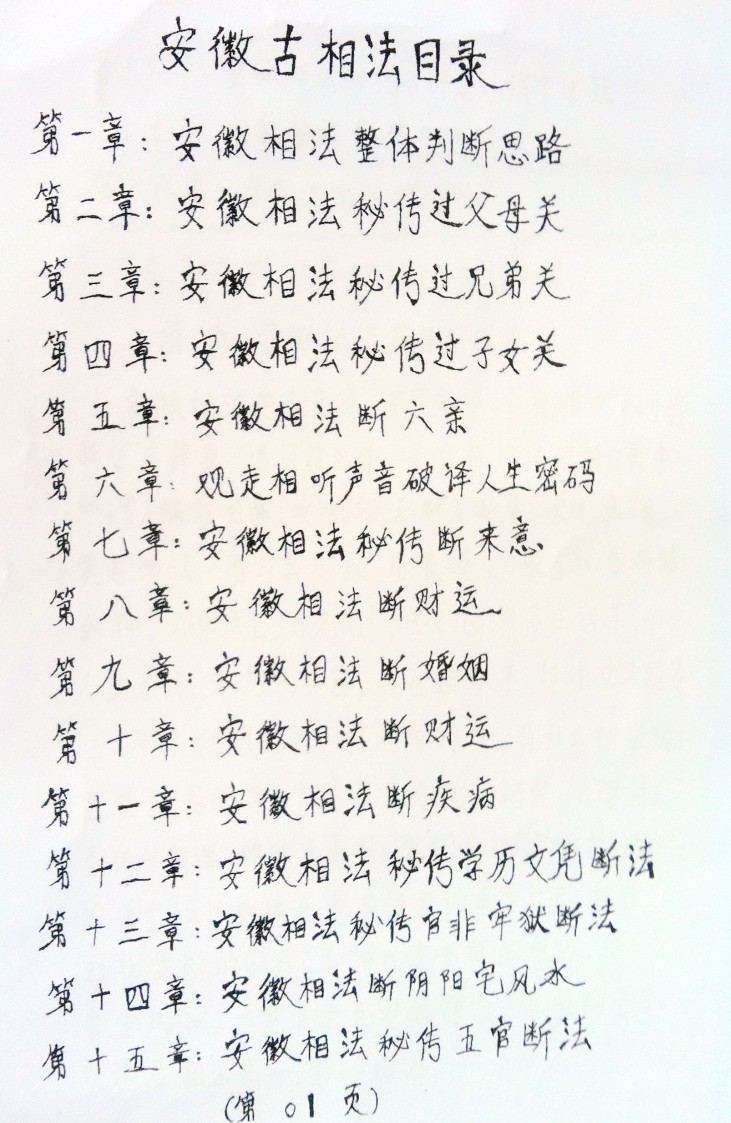 安徽古相法目录
第一章：安徽相法整体判断思路
第二章：安徽相法秘传过父母关
第三章：安徽相法秘传过兄弟关
第四章：安徽相法秘传过子女关
第五章：安徽相法断六亲
第六章：观走相听声音破译人生密码
第七章：安徽相法秘传断来意
第八章：安徽相法断财运
第九章：安徽相法断婚姻
第十章：安徽相法断财运
第十一章：安徽相法断疾病
第十二章：安徽相法秘传学历文凭断法
第十三章：安徽相法秘传官非牢狱断法
第十四章：安徽相法断阴阳宅风水
第十五章：安徽相法秘传五官断法
(第01页)